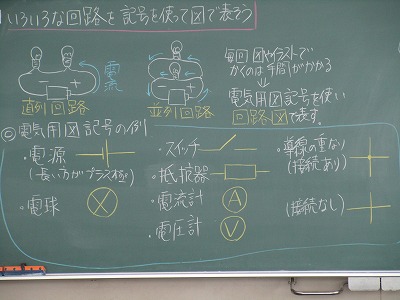 いろいろな回路を記号を使って図で表そう
電流
直列回路
並列回路
毎回図やイラストで
かくのは手間がかかる
電気用図記号を使い
回路図で表す。
◎電気用図記号の例
・電源
(長い方がプラス極)
・電球
・スイッチ
・抵抗器
・電流計 A
・電圧計 V
・導線の重なり
(接続あり)
(接続なし)